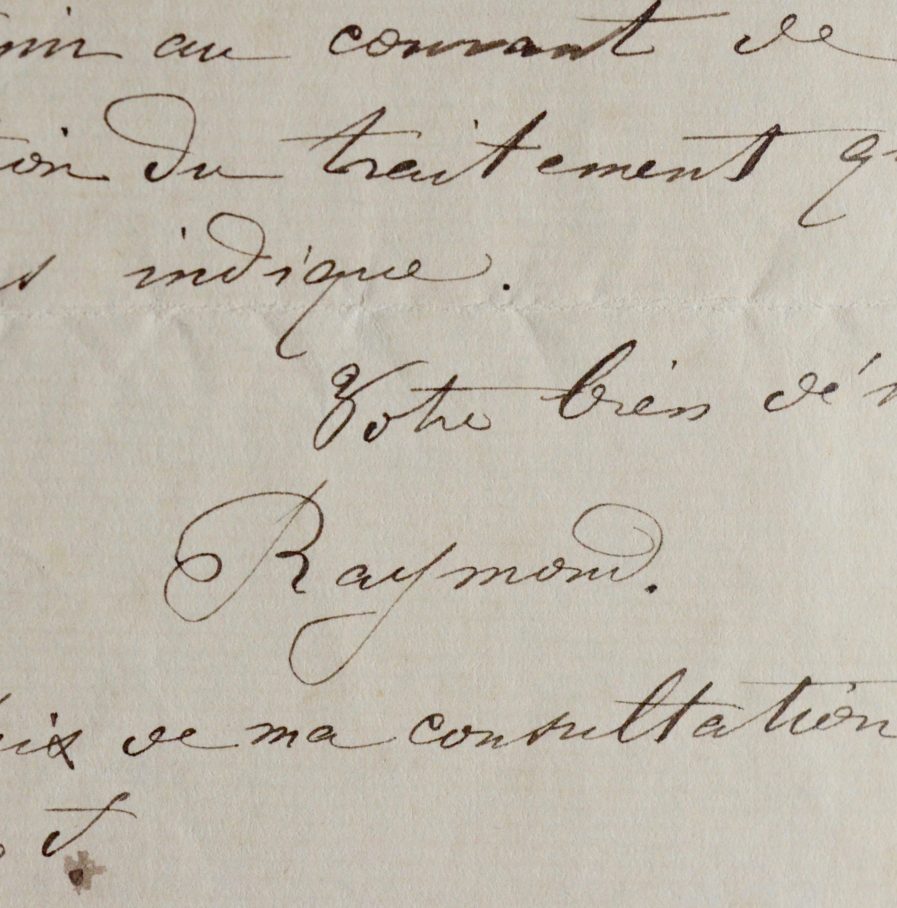 au courant de
tion du traitement
indique.
Votre bien dé
Raymond.
de ma consultation